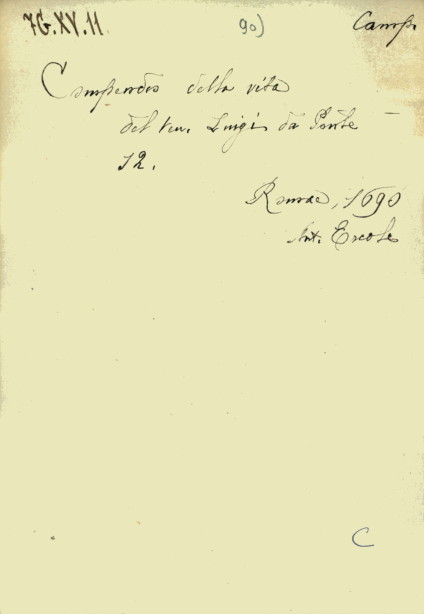 7G.XV.11 90) Comp.
Compendio della vita
del Ven. Luigi da Ponte —
12.
Romae, 1690
Ant. Ercole
C